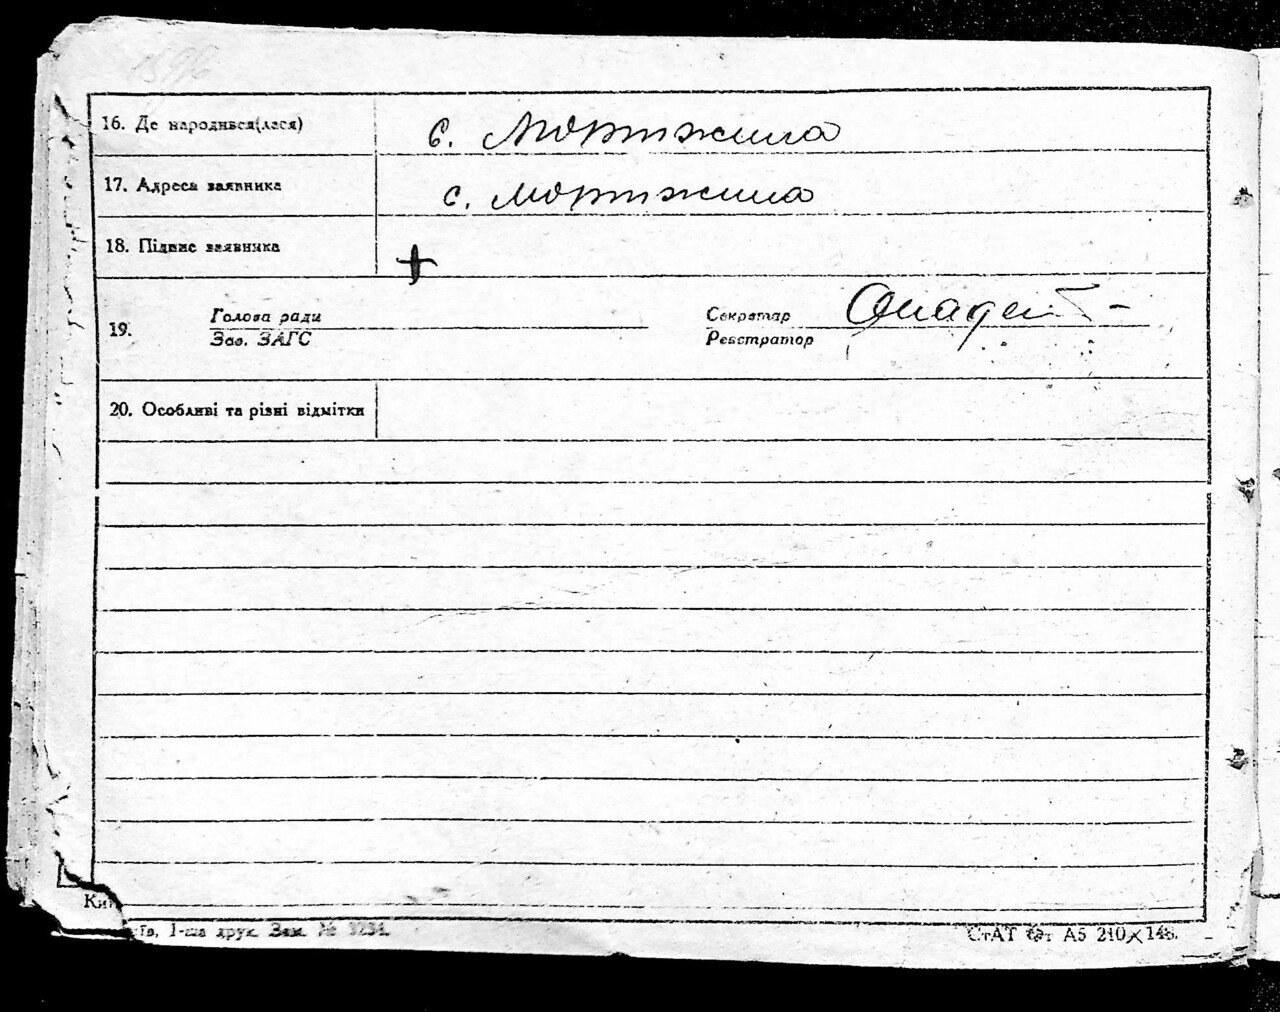 16. Де народився(лася) с. Мотижина
17. Адреса заявника с. Мотижина
18. Підпис заявника +
Голова ради Секретар
19.
Зав. ЗАГС Реєстратор
20. Особливі та різні відмітки
Киї
1-ша друк. Зам. № 3234. СтАТ Ф-т А5 210×148.